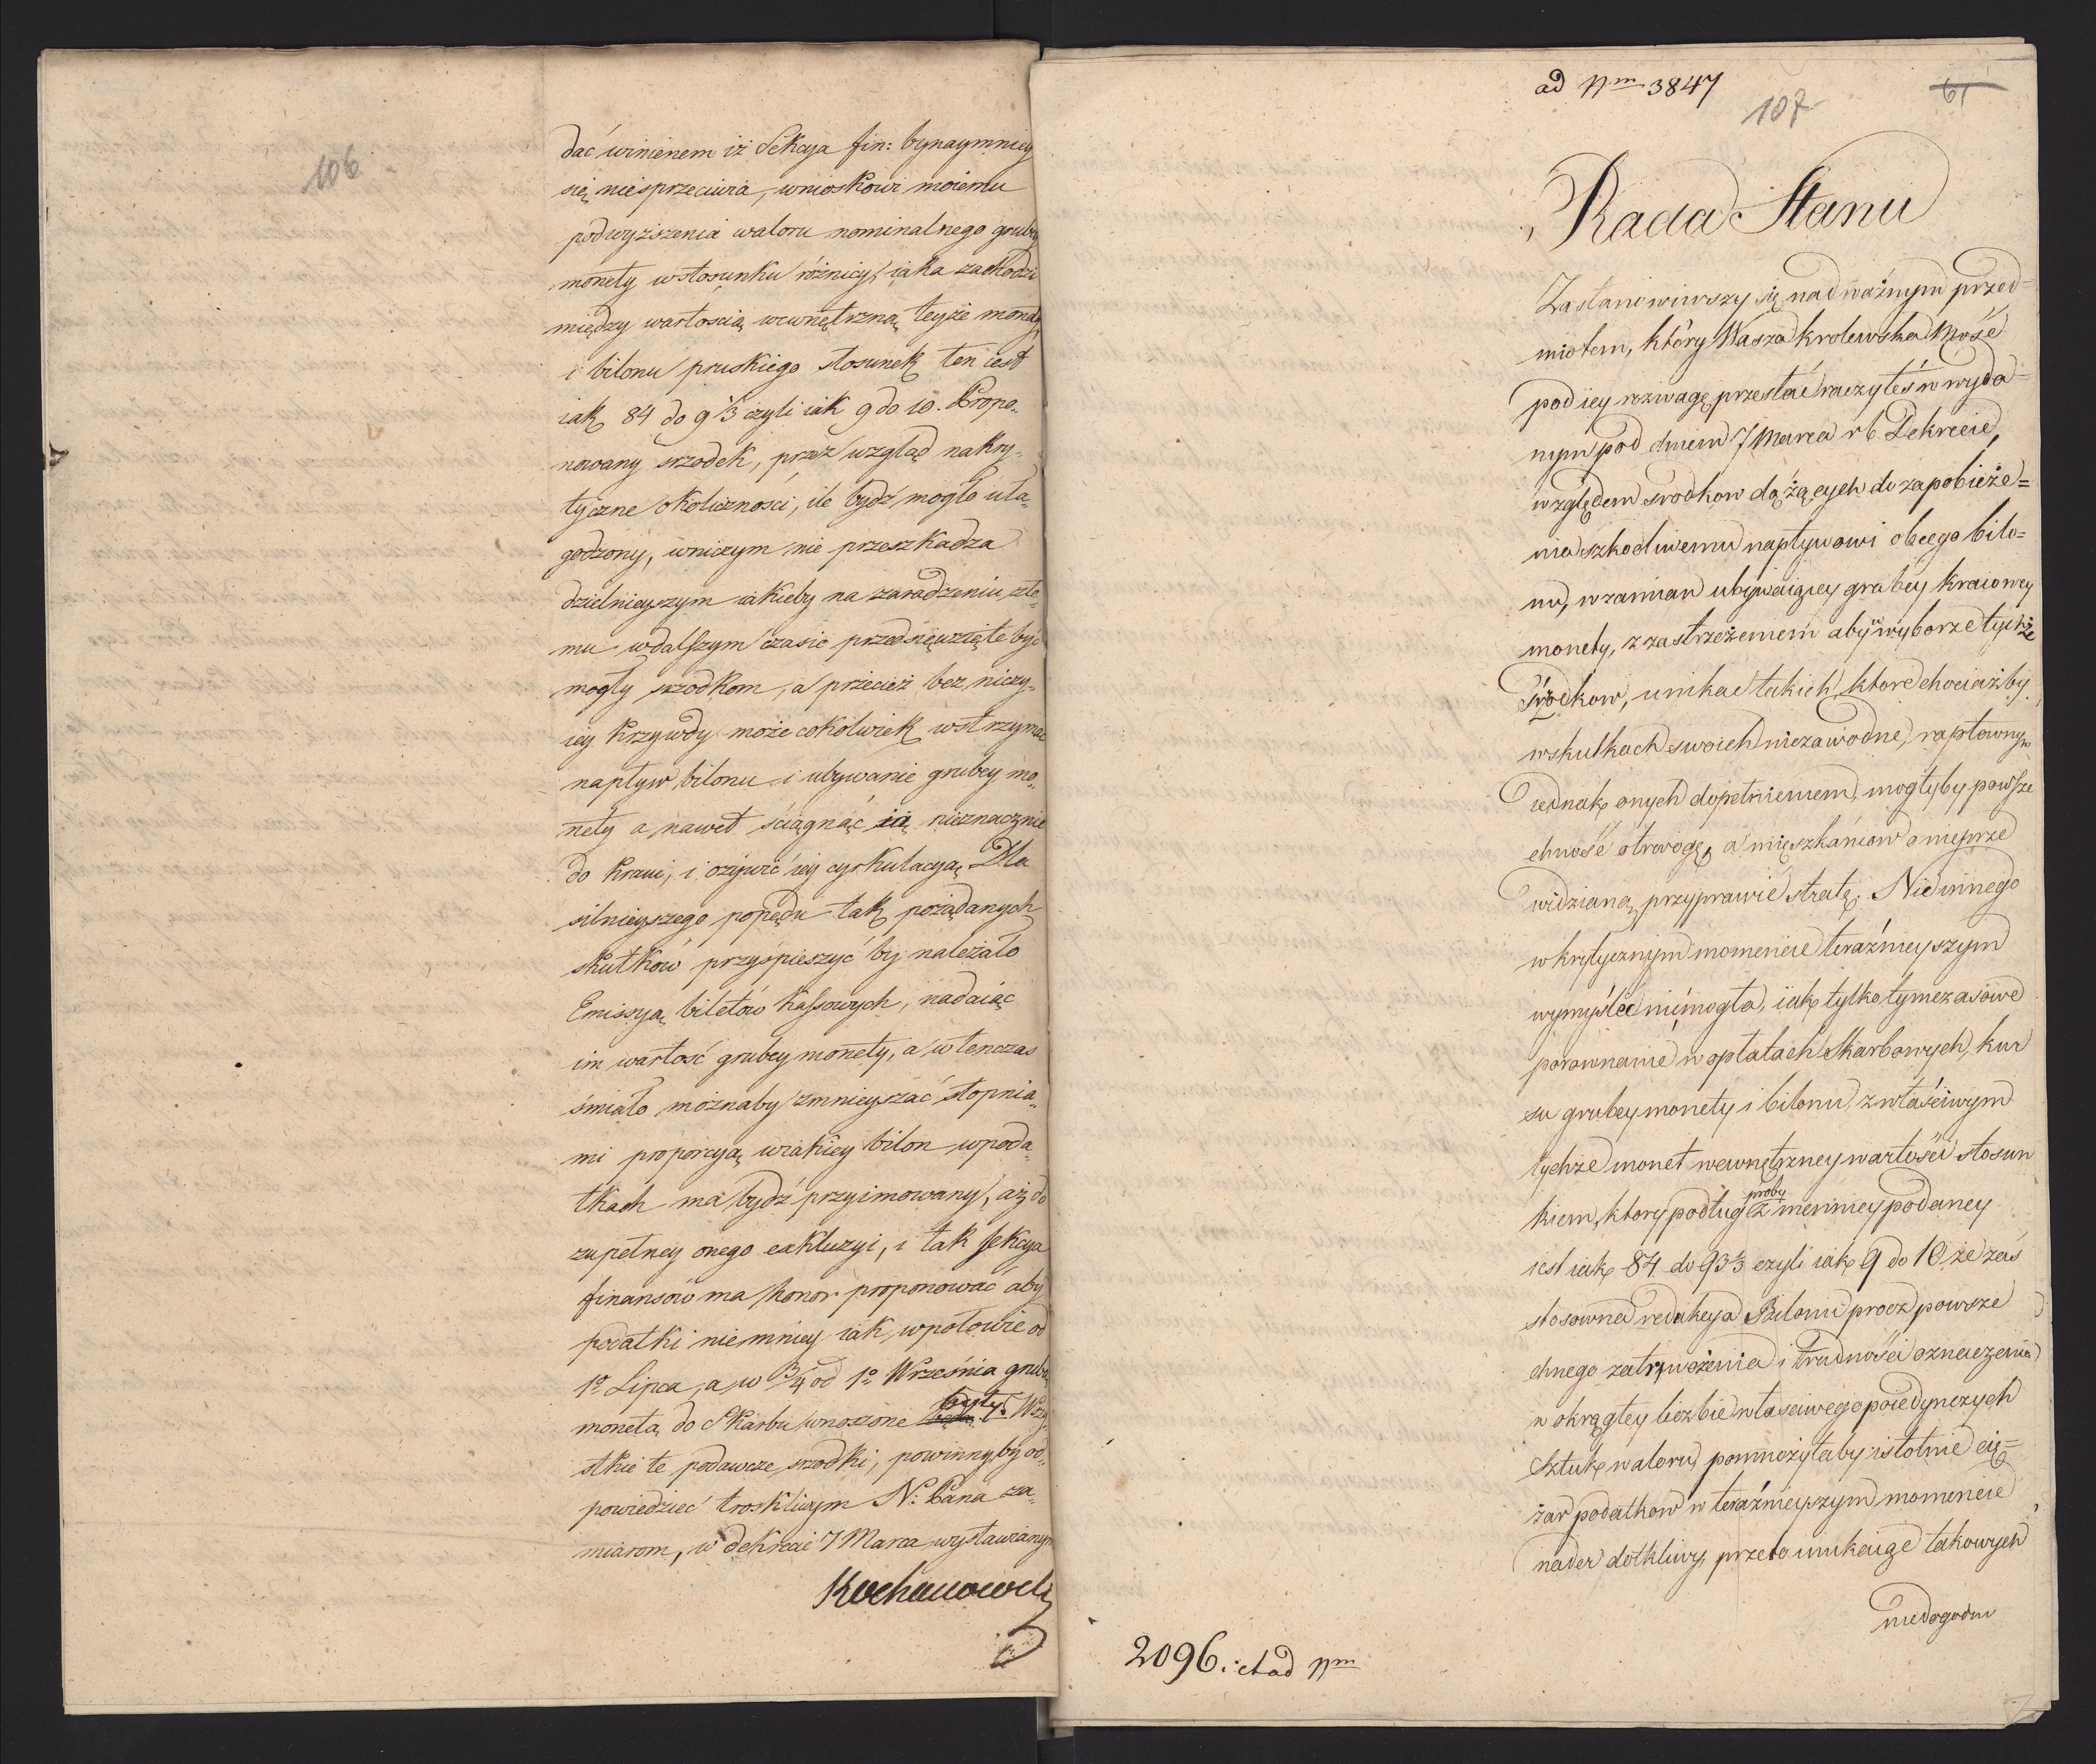 106
dać winienem iż Sekcya fin: bynaymniey
się niesprzeciwia, wnioskowi moiemu
podwyższenia waloru nominalnego grubey
monety wstosunku różnicy, iaka zachodzi
między wartością wewnętrzną teyże monety,
i bilonu pruskiego stosunek ten iest
iak 84 do 9⅓ czyli iak 9 do 10. Propo„
nowany srzodek, przez wzgląd na kry„
tyczne okoliczności, ile bydź mogło uła„
godzony, wniczym nie przeszkadza
dzielnieyszym iakieby na zaradzeniu złe„
mu wdalszym czasie przedsięwzięte być
mogły srzodkom, a przecież bez niczy„
iey krzywdy może cokolwiek wstrzymać
napływ bilonu i ubywanie grubey mo„
nety a nawet ściągnąć ią nieznacznie
do kraiu, i ożywić iey cyrkulacyą Dla
silnieyszego popędu tak pożądanych
skutków przyśpieszyć by należało
Emissyą biletów kassowych, nadaiąc
im wartość grubey monety, a wtenczas
śmiało możnaby zmnieyszać stopnia„
mi proporcyą wiakiey bilon wpoda„
tkach ma bydź przyimowany, aż do
zupełney onego exkluzyi, i tak Sekcya
finansów ma honor proponować aby
podatki niemniey iak wpołowie od
1º Lipca, a w ¾ od 1º Września grubą
monetą do Skarbu wnoszone były. Wszy„
stkie te podawcze srzodki, powinny by od„
powiedzieć troskliwym N: Pana za„
miarom, w dekrecie 7 Marca wystawianym
Kochanowski
ad Nm 3847
107
61
Rada Stanu
Zastanowiwszy się nad ważnym przed=
miotem, który Wasza Krolewska Mość
pod iey rozwagę przesłać raczyłeś w wyda=
nym pod dniem 7 Marca rb Dekrecie,
względem srodkow dążących do zapobieże=
nia szkodliwemu napływowi obcego bilo=
nu, w zamian ubywaiącey grubey kraiowey
monety, z zastrzeżeniem aby w wyborze tychże
Srzodkow, unikać takich, ktore chociażby
w skutkach swoich niezawodne, raptownym
iednak onych dopełnieniem, mogłyby powsze
chność otrwogę, a mięszkańcow o nieprze
widzianą przyprawić stratę. Nic innego
w krytycznym momencie teraźnieyszym
wymyśleć niemogła, iak tylko tymczasowe
porownanie w opłatach Skarbowych, kur
su grubey monety i bilonu, z właściwym
tychże monet wewnętrzney wartości stosun
kiem, ktory podług proby z mennicy podaney
iest iak 84 do 93⅓ czyli iak 9 do 10, że zaś
stosowna redukcya Bilonu procz powsze
chnego zatrwożenia i trudności oznaczenia
w okrągłey liczbie własciwego poiedynczych
Sztuk waloru, pomnożyłaby istotnie cię=
żar podatkow w teraźnieyszym momencie
nader dotkliwy, przeto unikaiąc takowych
niedogodno
2096. et ad Nm